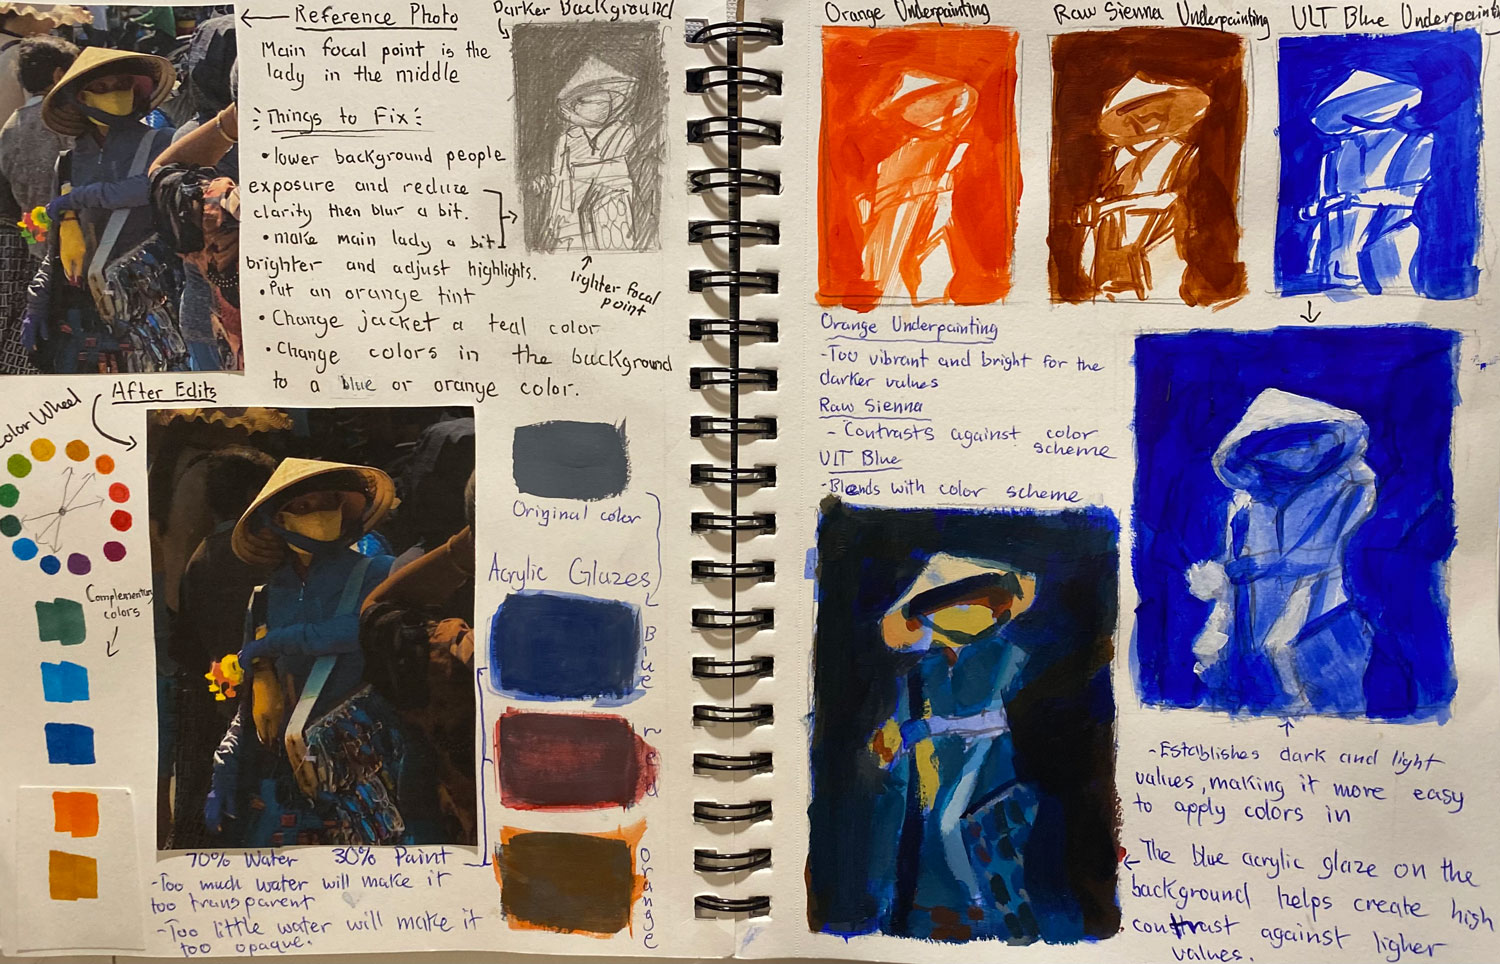 Reference Photo
Main focal point is the
lady in the middle
Things to Fix
• lower background people
exposure and reduce
clarity then blur a bit.
• make main lady a bit
brighter and adjust highlights.
• Put an orange tint
• Change jacket a teal color
• Change colors in the background
to a blue or orange color.
Darker Background
lighter focal
point
After Edits
Color Wheel
Complementary
colors
Original color
Acrylic Glazes
Blue
red
orange
70% Water 30% Paint
-Too much water will make it
too transparent
-Too little water will make it
too opaque.
Orange Underpainting
Raw Sienna Underpainting
ULT Blue Underpainting
Orange Underpainting
-Too vibrant and bright for the
darker values
Raw Sienna
- Contrasts against color
scheme
ULT Blue
-Blends with color scheme
-Establishes dark and light
values, making it more easy
to apply colors in
The blue acrylic glaze on the
background helps create high
contrast against ligher
values.